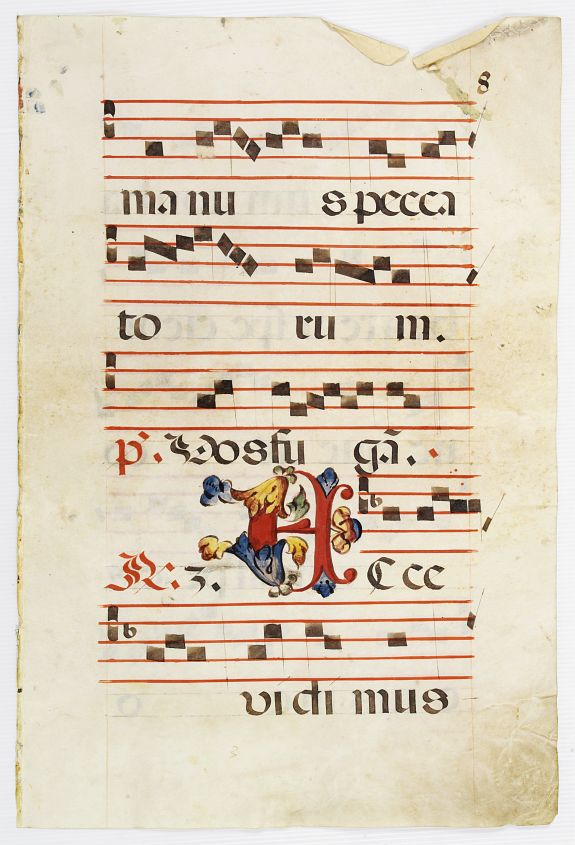 8
ma nu s pecca
to ru m.
p̃. Vos fu gã.
R: 3. E Ccc
vi di mus